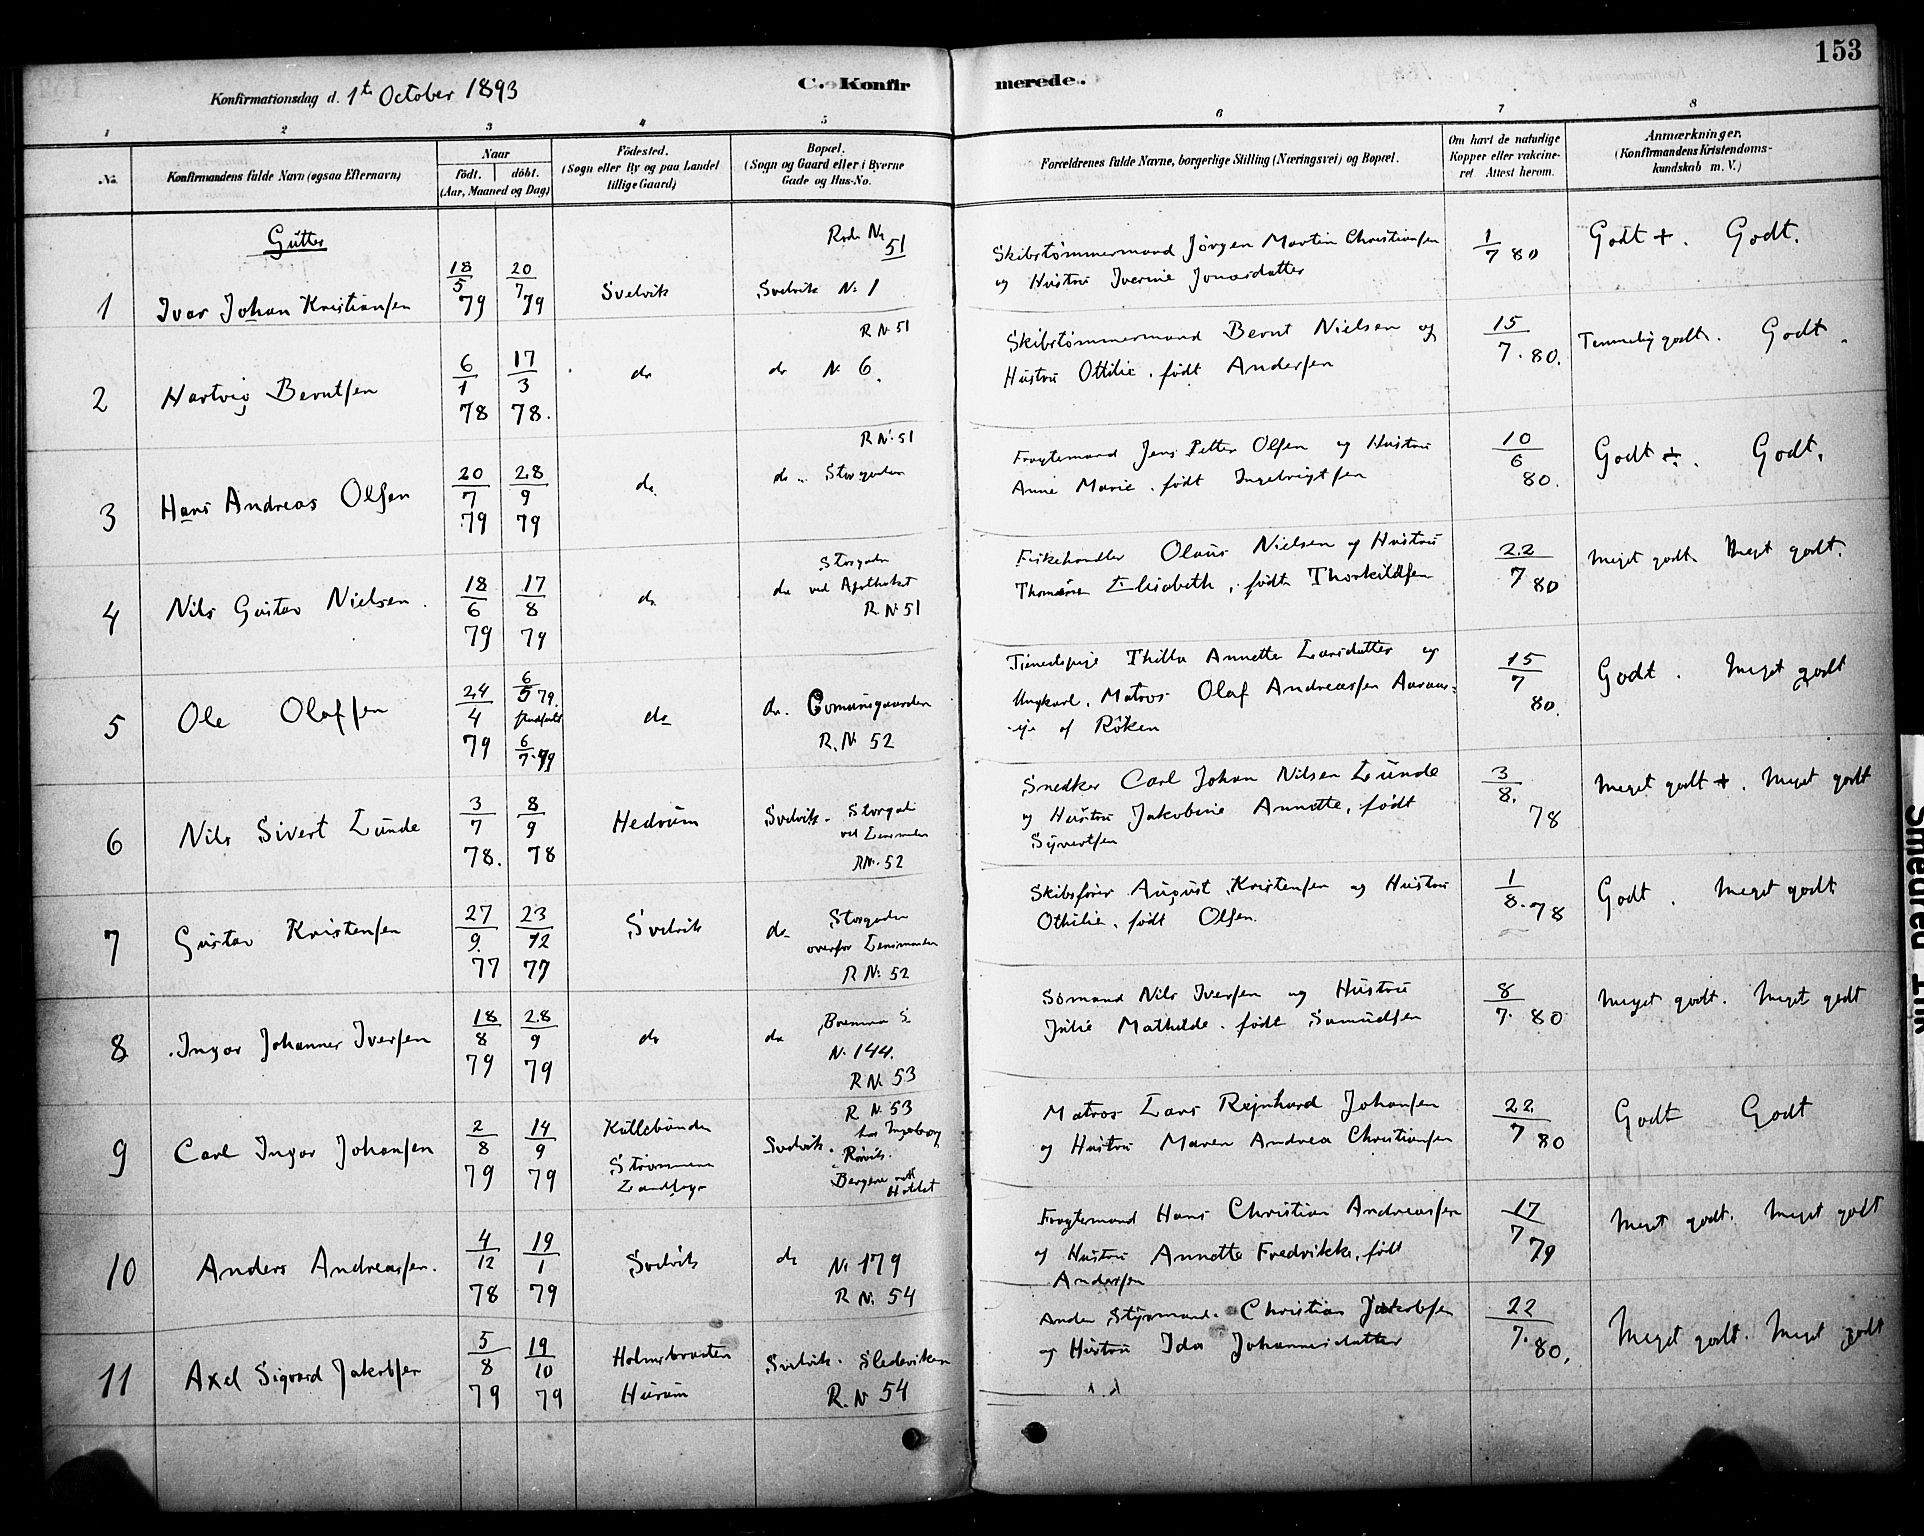 153
Konfirmationsdag d. 1te October 1893
C. Konfirmerede.
1 2 3 4 5 6 7 8
No.
Konfirmandens fulde Navn (ogsaa Efternavn)
Naar
födt. döbt.
(Aar, Maaned og Dag)
Födested.
(Sogn eller By og paa Landet
tillige Gaard)
Bopæl.
(Sogn og Gaard eller i Byerne
Gade og Hus-No.
Forældrenes fulde Navne, borgerlige Stilling (Næringsvei) og Bopæl.
Om havt de naturlige
Kopper eller vakcineret
Attest herom.
Anmærkninger.
(Konfirmandens Kristendomskundskab
m. V.)
Gutter
1 Ivar Johan Kristiansen 18/5 79 20/7 79 Svelvik Svelvik No 1 Rode No 51
Skibstømmermand Jörgen Martin Christiansen
og Hustru Iverine Jonasdatter
1/7 80 Godt +. Godt.
2 Hartvig Berntsen 6/1 78 17/3 78. do do No 6. R No 51
Skibstømmermand Bernt Nielsen og
Hustru Ottilie, født Andersen
15/7.80. Temmelig godt. Godt.
3 Hans Andreas Olsen 20/7 79 28/9 79 do do Storgaden R No 51
Fragtemand Jens Petter Olsen og Hustru
Anne Marie, født Ingebrigtsen
10/6 80. Godt ÷. Godt.
4 Nils Gustav Nielsen. 18/6 79 17/8 79 do do Storgaden
ved Apotheket
R. No 51
Fiskehandler Olaus Nielsen og Hustru
Elisabeth, født Thorkildsen
22/7 80 Meget godt. Meget godt.
5 Ole Olafsen 24/4 79 6/5 79. 6/7.79 do do. Comunegaarden
R. No 52
Tienestepige Thilla Annette Larsdatter og
Ungkarl, Matros Olaf Andreassen
af Röken
15/7 80. Godt. Meget godt
6 Nils Sivert Lunde 3/7 78. 8/9 78 Hedrum Svelvik. Storgad
ved Lensmanden
R No. 52
Snedker Carl Johan Nilsen Lunde
og Hustru Jakobine Annette, født
Syvertsen
3/8. 78 Meget godt +. Meget godt
7 Gustav Kristensen 27/9. 77 23/12 77 Svelvik do Storgaden
overfor Lensmanden
R No. 52
Skibsfører August Kristensen og Hustru
Othilie, født Olsen.
1/8.78 Godt. Meget godt
8 Ingvar Johannes Iversen 18/8 79 28/9 79 do do
No. 144.
R No. 53
Sømand Nils Iversen og Hustru
Julie Mathilde, født Samuelsen
8/7. 80 Meget godt. Meget godt
9 Carl Ingvar Johansen 2/8 79 14/9 79 Killebunden
Strømmens
Landsogn
Svelvik. R No. 53
hos Ingeborg
Rørvik.
Bergene ved
Holtet
Matros Lars Reinhard Johansen
og Hustru Maren Andrea Christiansen
22/7 80 Godt Godt
10 Anders Andreassen. 4/12 78 19/1 79 Svelvik do No 179
R No. 54
Fragtemand Hans Christian Andreassen
og Hustru Annette Fredrikke, født
Andersen
17/7 79 Meget godt. Meget godt
11 Axel Sigvard Jakobsen 5/8 79 19/10 79 Holmsbraaten
Hurum
Svelvik. Sledeviken
R. No 54
Anden Styrmand Christian Jakobsen
og Hustru Ida Johannesdatter
22/7. 80. Meget godt. Meget godt
Smedred Ink